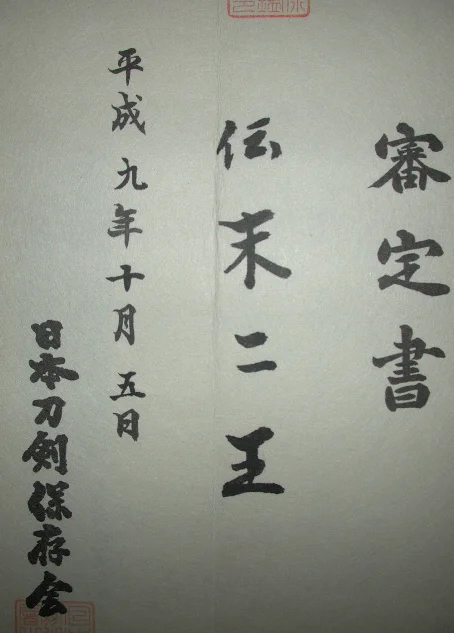 審定書
伝末二王
平成九年十月五日
日本刀剣保存会